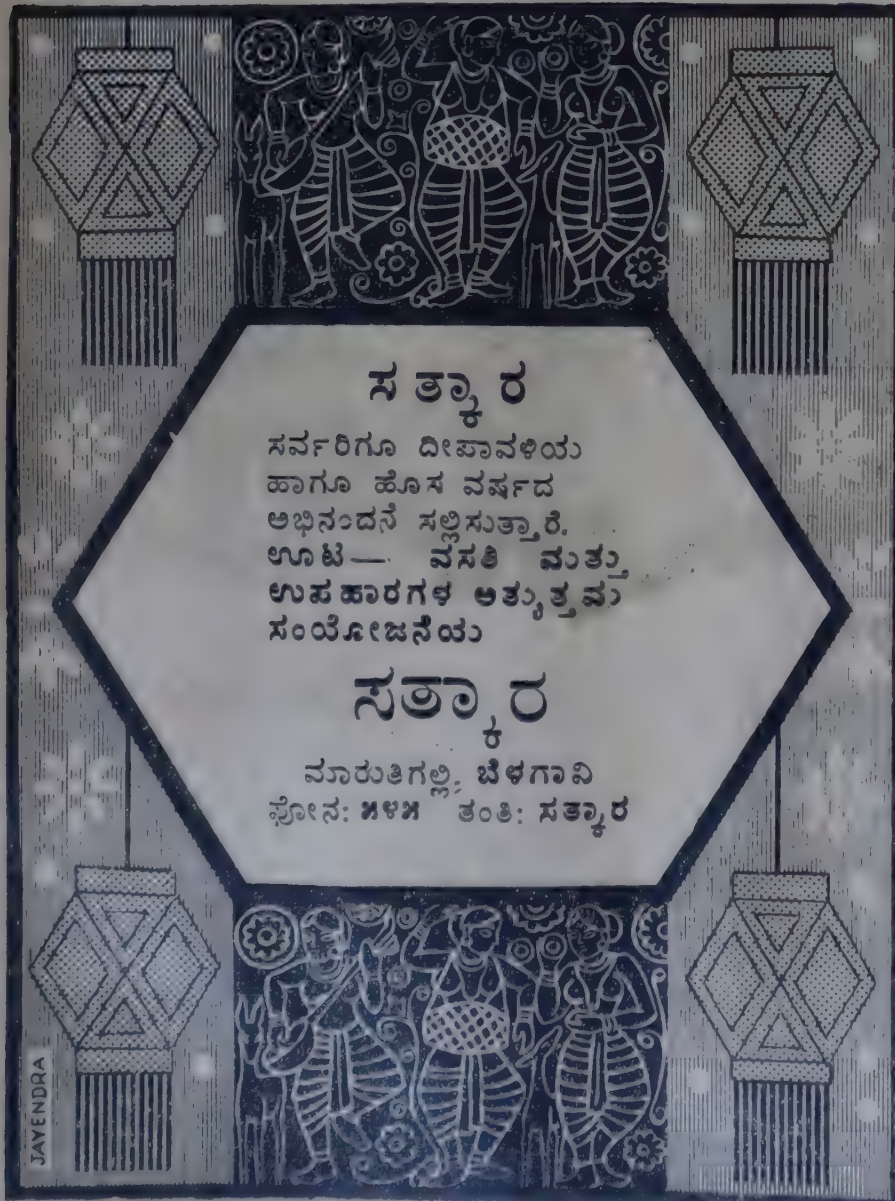 ಸತ್ಕಾರ
ಸರ್ವರಿಗೂ ದೀಪಾವಳಿಯ
ಹಾಗೂ ಹೊಸ ವರ್ಷದ
ಅಭಿನಂದನೆ ಸಲ್ಲಿಸುತ್ತಾರೆ.
ಊಟ— ವಸತಿ ಮತ್ತು
ಉಪಹಾರಗಳ ಅತ್ಯುತ್ತಮ
ಸಂಯೋಜನೆಯ
ಸತ್ಕಾರ
ಮಾರುತಿಗಲ್ಲಿ, ಬೆಳಗಾವಿ
ಫೋನ: ೫೪೫ ತಂತಿ: ಸತ್ಕಾರ
JAYENDRA